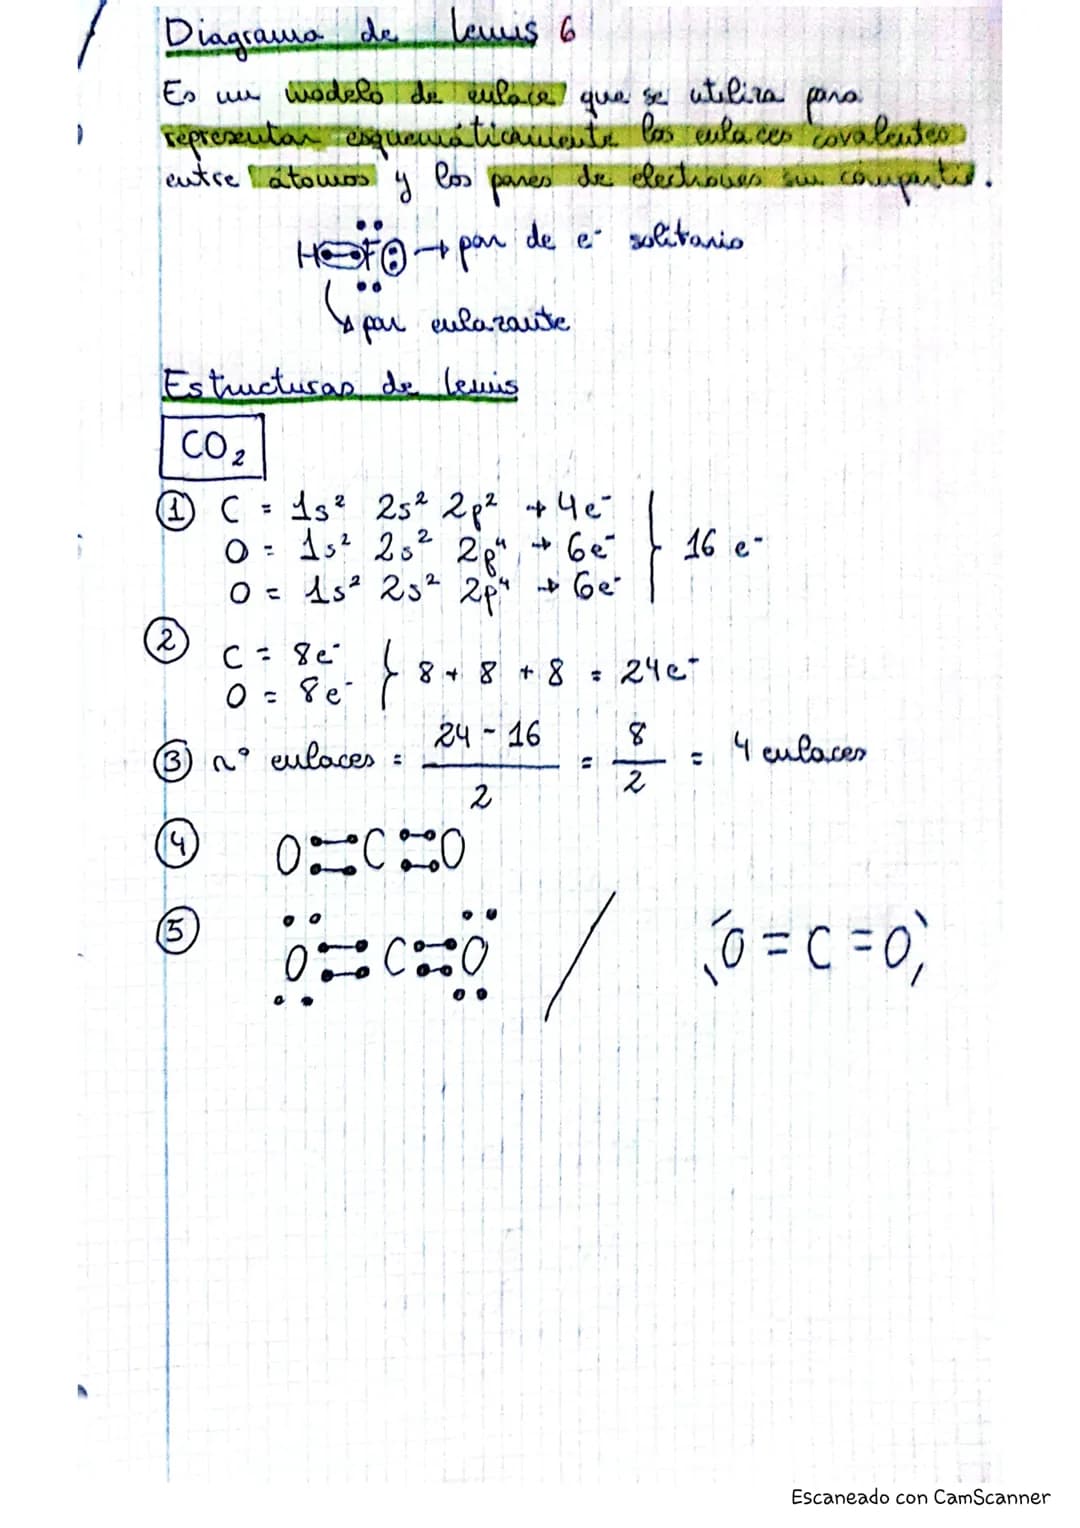 Diagrama de Lewis 6
Es un modelo de enlace que se utiliza para
representar esquemáticamente los enlaces covalentes
entre átomos y los pares de electrones sin compartir.
H F → par de e⁻ solitario
↳ par enlazante
Estructuras de Lewis
CO₂
① C = 1s² 2s² 2p² → 4e⁻
O = 1s² 2s² 2p⁴ → 6e⁻ } 16 e⁻
O = 1s² 2s² 2p⁴ → 6e⁻
② C = 8e⁻
O = 8e⁻ } 8 + 8 + 8 = 24e⁻
③ nº enlaces = (24 - 16) / 2 = 8 / 2 = 4 enlaces
④ O=C=O
⑤ O=C=O / O=C=O
Escaneado con CamScanner